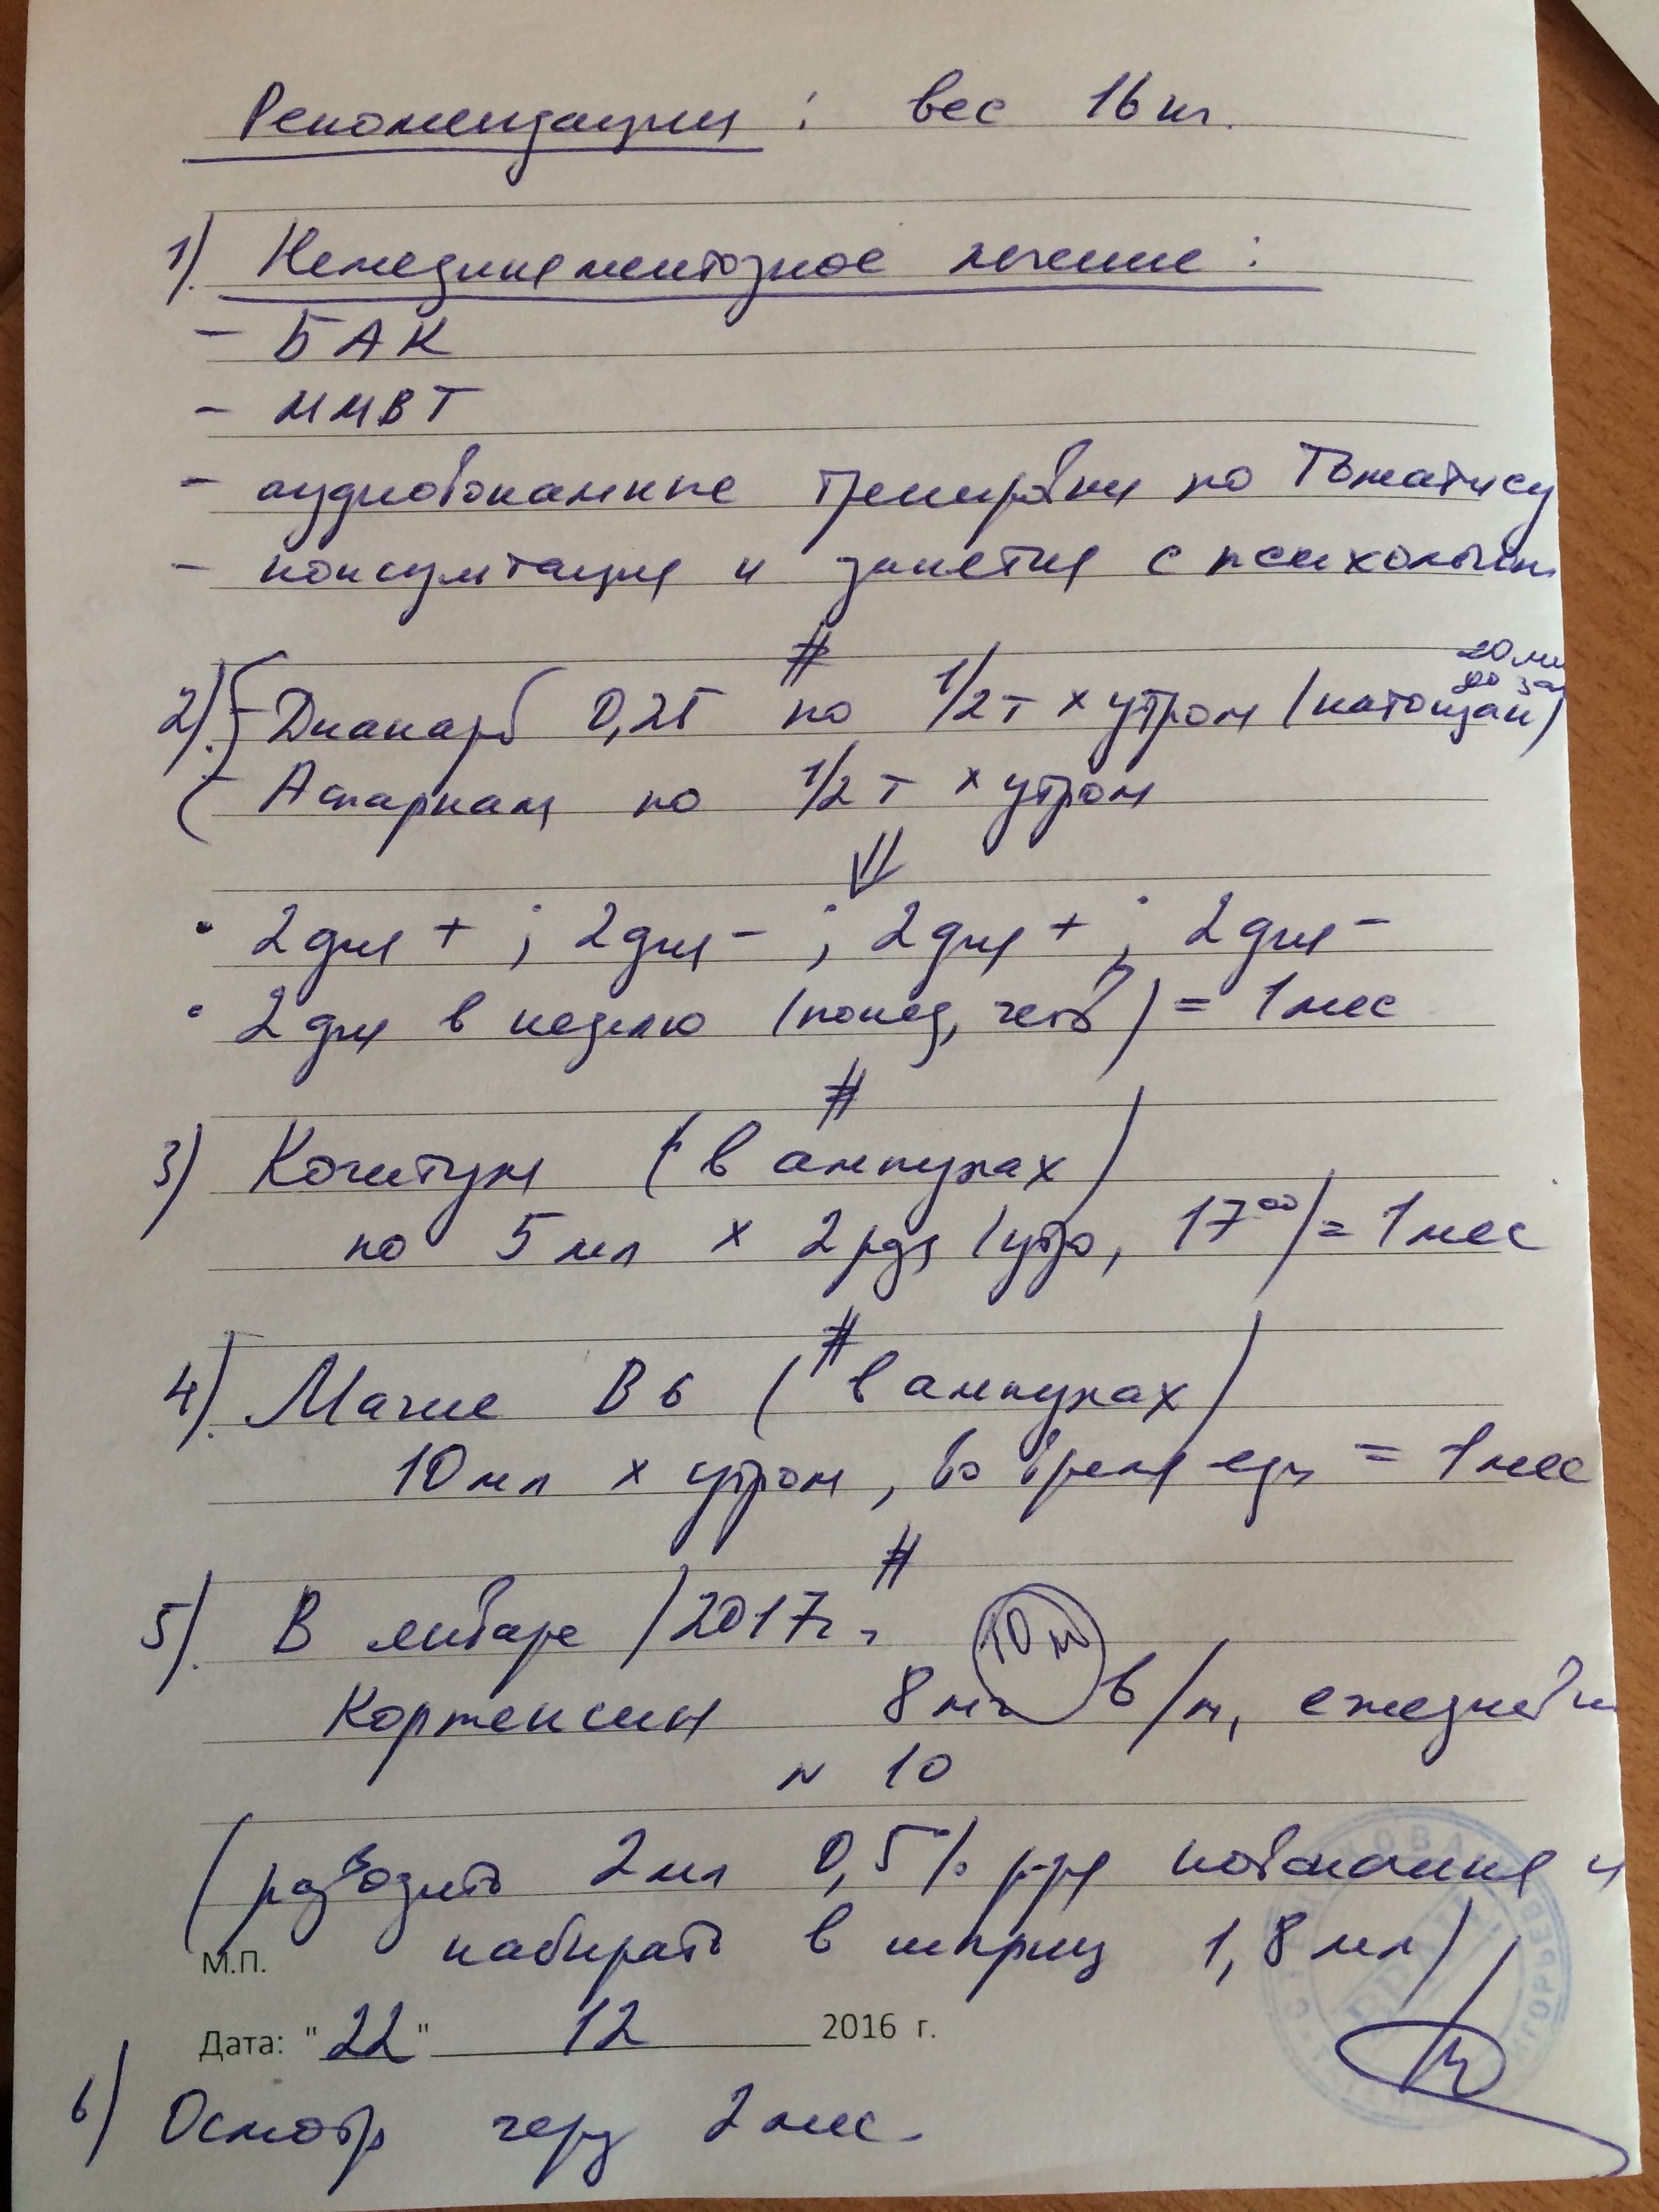 Рекомендации : вес 16 кг.
1). Немедикаментозное лечение :
- БАК
- ММВТ
- аудиовокальные тренировки по Томатису
- консультация и занятия с психологом
#
20 ми
до за
2). - Диакарб 0,25 по 1/2 т х утром (натощак)
- Аспаркам по 1/2 т х утром
⇓
• 2 дня + ; 2 дня - ; 2 дня + ; 2 дня -
• 2 дня в неделю (понед, четв) = 1 мес
#
3) Когитум (в ампулах)
по 5 мл х 2 рд (утро, 17⁰⁰) = 1 мес
#
4). Магне В6 (в ампулах)
10 мл х утром, во время еды = 1 мес
#
5). В январе /2017г.
10 м
Кортексин 8 мг в/м, ежеднев
N 10
(разводить 2 мл 0,5% р-ра новокаина и
набирать в шприц 1,8 мл)
М.П.
Дата: "22" 12 2016 г.
6) Осмотр через 2 мес.